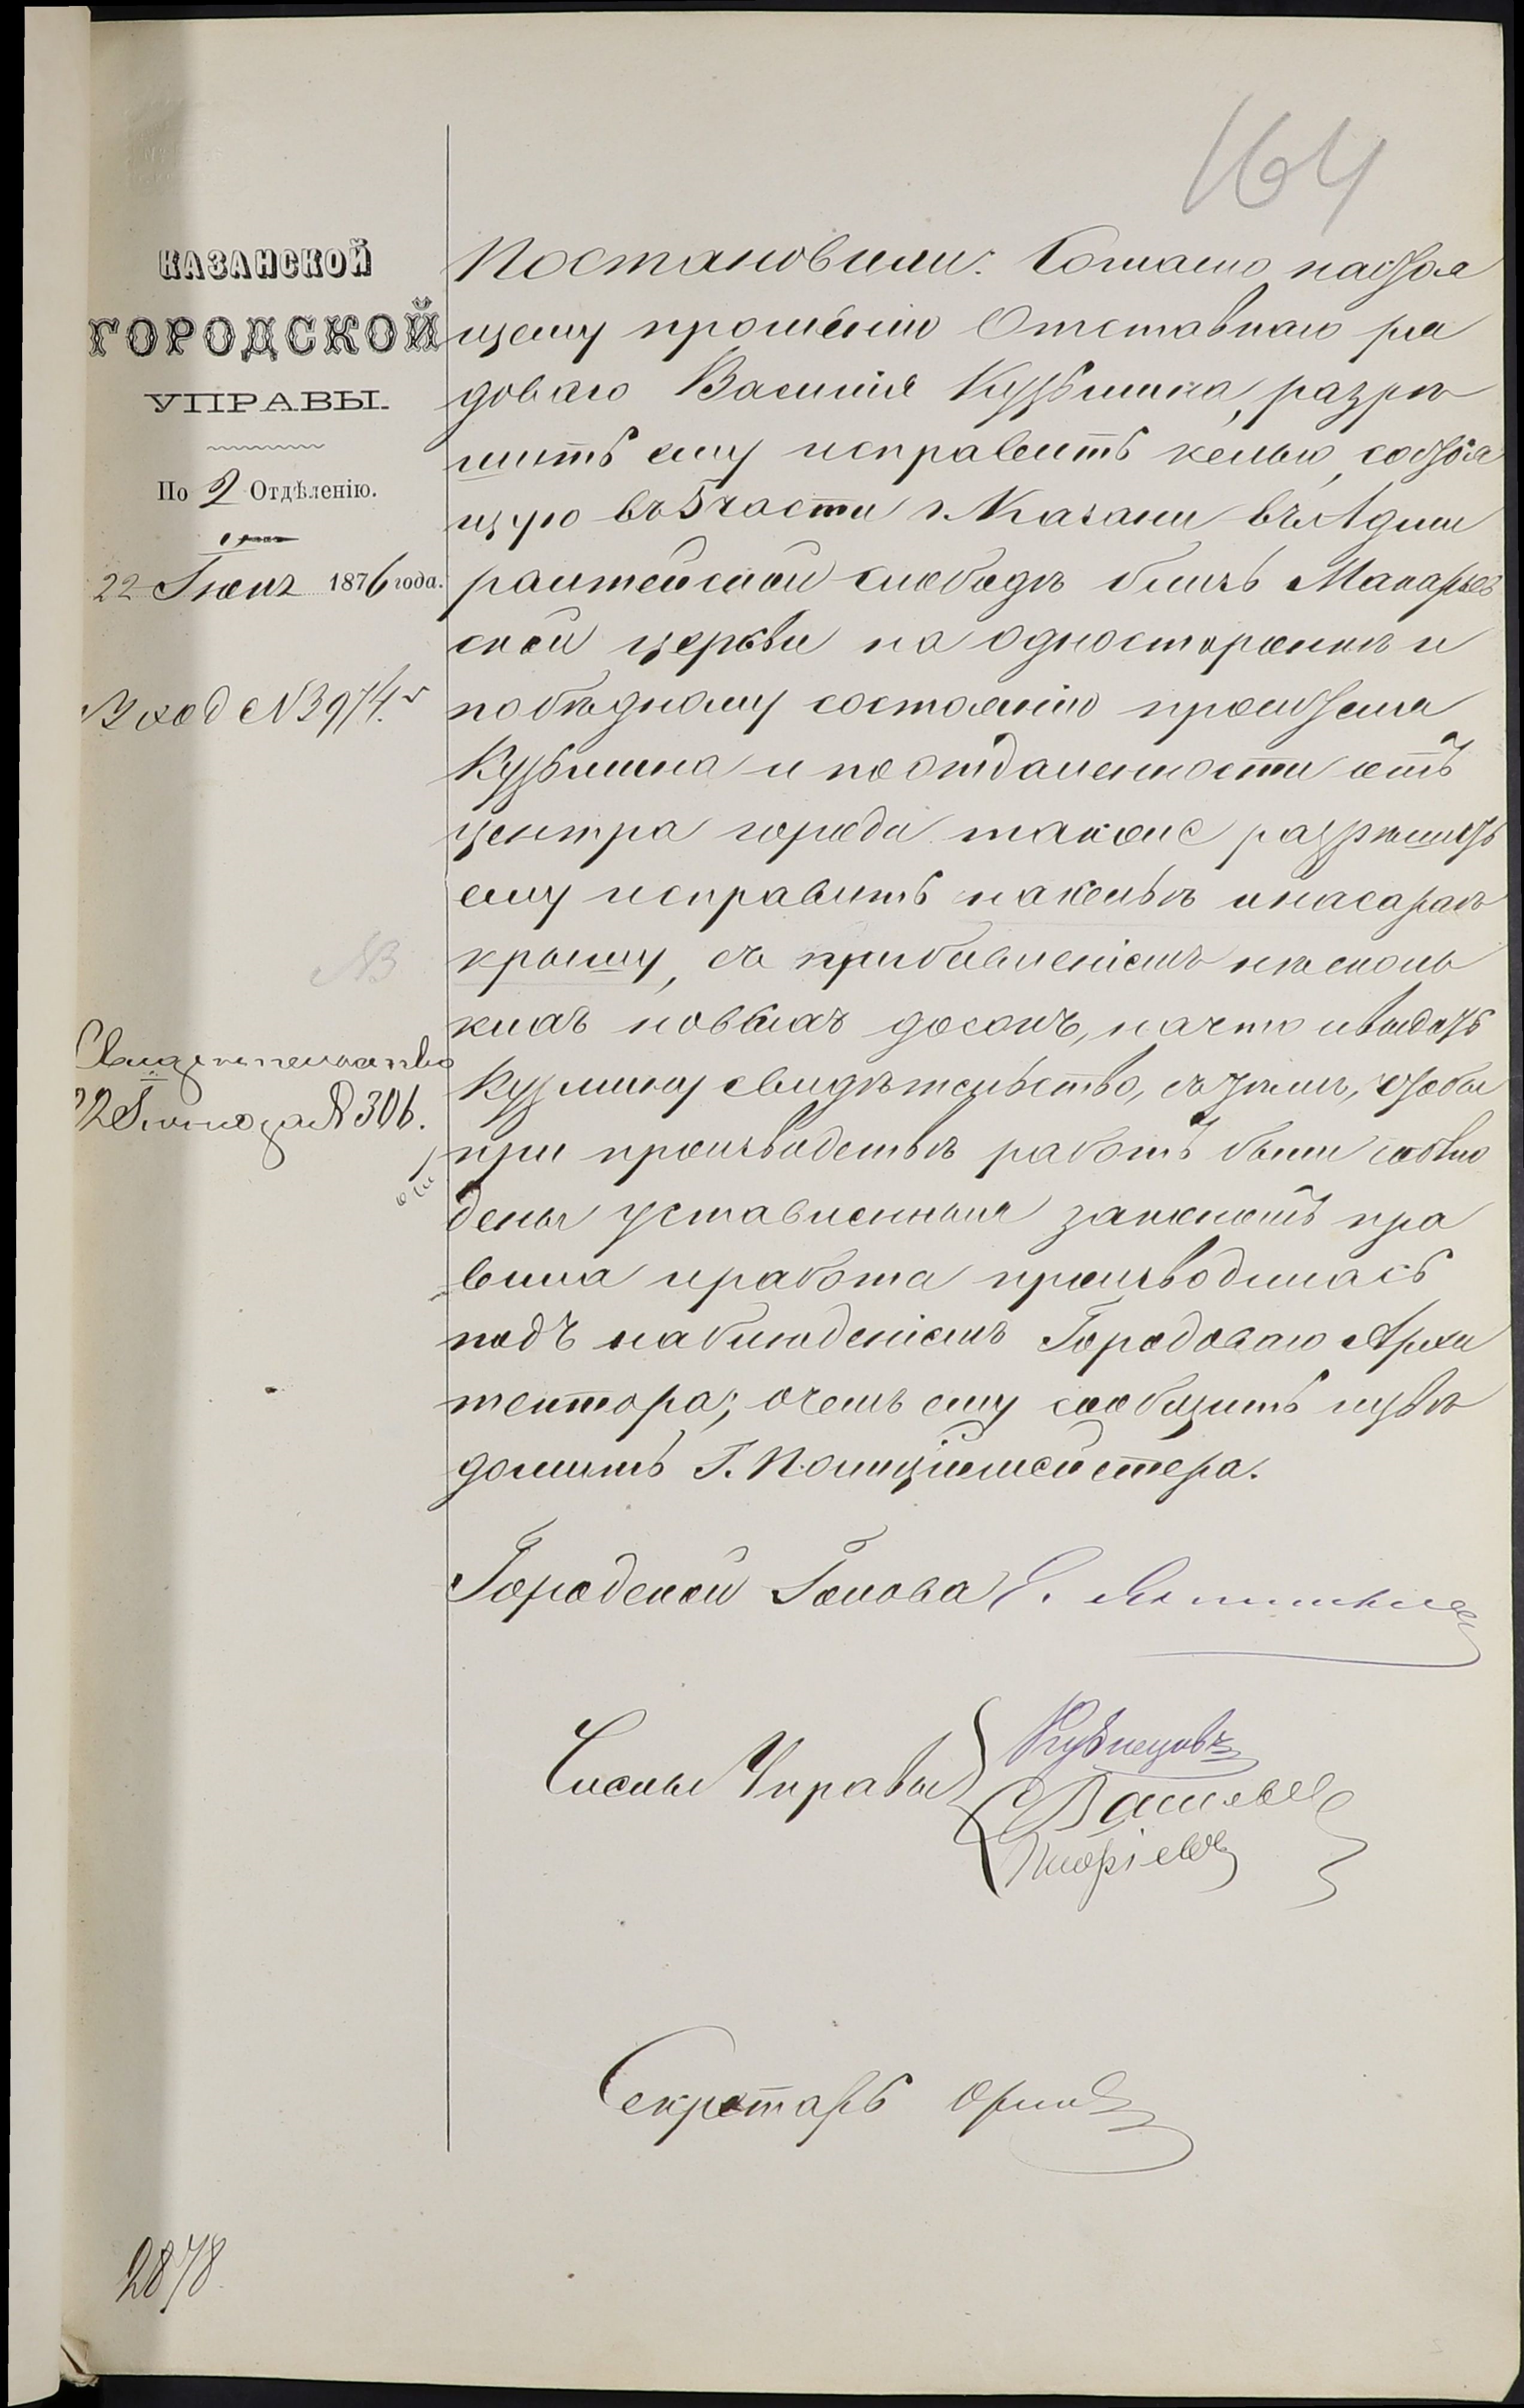 164
КАЗАНСКОЙ
ГОРОДСКОЙ
УПРАВЫ.
По 2 Отдѣленію.
22 Іюня 1876 года.
Вход № 3974.
№
Свидетельство
22 Іюня за № 306.
Постановили: Согласно настоя
щему прошенію Отставнаго ря
доваго Василія Кузьмина, разрѣ
шить ему исправить келью, состоя
щую въ 5 части г. Казани въ Адми
ралтейской слободѣ близь Макарьев
ской церкви на одностороннѣ и
по бѣдному состоянію просителя
Кузьмина и по отдаленности отъ
центра города также разрѣшить
ему исправить на кельѣ и на сараѣ
крышу, съ прибавленіемъ несколь
кихъ новыхъ досокъ, на что и выдать
Кузмину свидѣтельство, съ тѣмъ, чтобы
при производствѣ работъ были соблю
дены установленныя закономъ пра
вила и работа производилась
подъ наблюденіемъ Городоваго Архи
тектора; о чемъ ему сообщить и увѣ
домить Г. Полиціймейстера.
Городской Голова
Члены Управы
Кузнецовъ
Секретарь Орловъ
2878